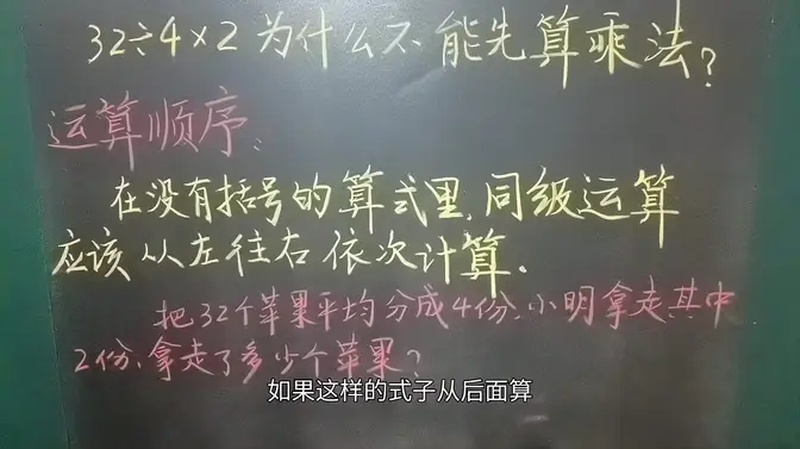 32÷4×2为什么不能先算乘法?
运算顺序:
在没有括号的算式里,同级运算
应该从左往右依次计算.
把32个苹果平均分成4份,小明拿走其中
2份,拿走了多少个苹果?
如果这样的式子从后面算